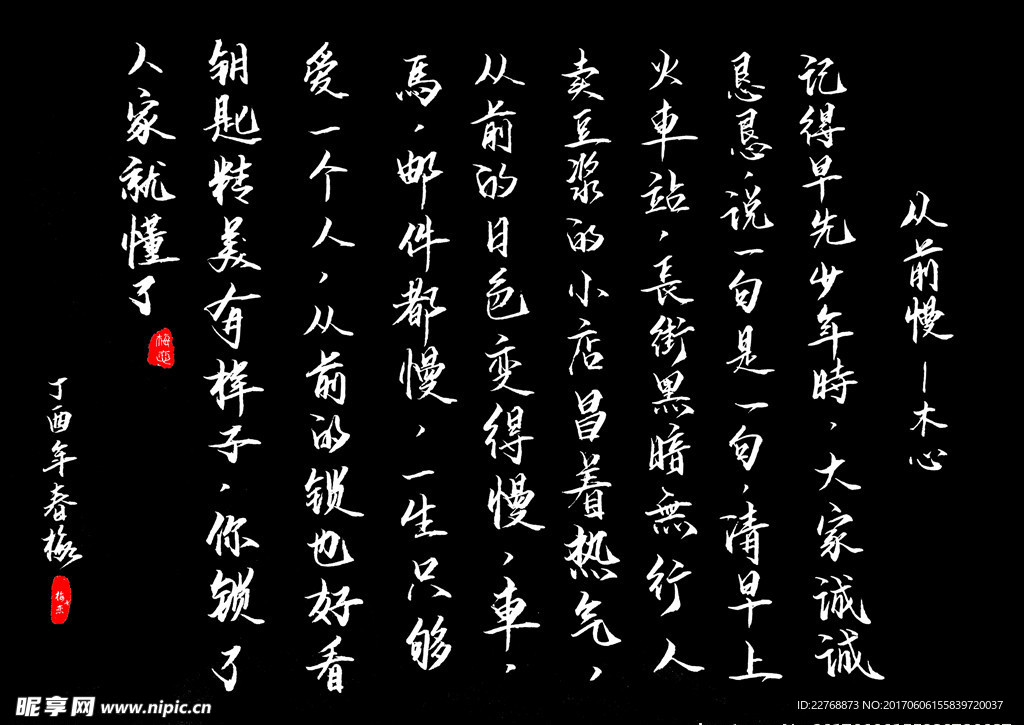 从前慢—木心
记得早先少年時，大家诚诚
恳恳，说一句是一句，清早上
火車站，長街黑暗無行人
卖豆浆的小店昌着热气，
从前的日色变得慢，車，
馬，邮件都慢，一生只够
爱一个人，从前的锁也好看
钥匙精美有样子，你锁了
人家就懂了
丁酉年春梅
昵享网 www.nipic.cn
ID:22768873 NO:20170606155839720037